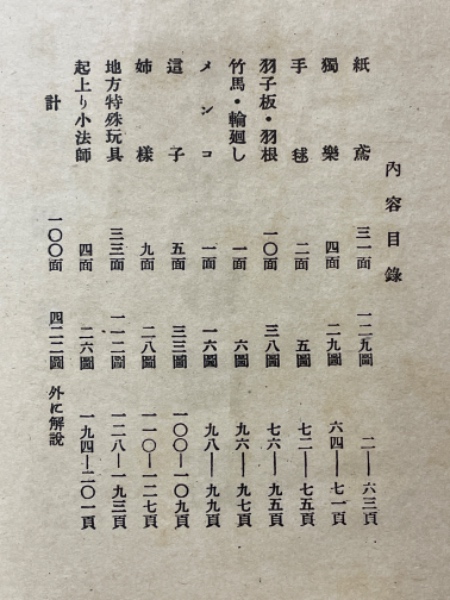 內容目錄
紙鳶 三一面 一二九圖 二—六三頁
獨樂 四面 二九圖 六四—七一頁
手毬 二面 五圖 七二—七五頁
羽子板・羽根 一〇面 三八圖 七六—九五頁
竹馬・輪廻し 一面 六圖 九六—九七頁
メンコ 一面 一六圖 九八—九九頁
這子 五面 三三圖 一〇〇—一〇九頁
姉樣 九面 二八圖 一一〇—一二七頁
地方特殊玩具 三三面 一一二圖 一二八—一九三頁
起上り小法師 四面 二六圖 一九四—二〇一頁
計 一〇〇面 四二二圖 外に解說